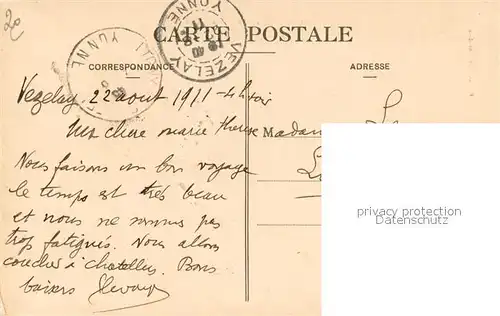 CARTE POSTALE
CORRESPONDANCE
ADRESSE
VEZELAY
YONNE
YONNE
Vezelay 22 aout 1911 - 4h soir
Ma chere marie therese
Madam
Nous faisons un bon voyage
le temps est très beau
et nous ne sommes pas
trop fatigués. Nous allons
coucher à
Bons
baisers
privacy protection
www.oldthing.de
20